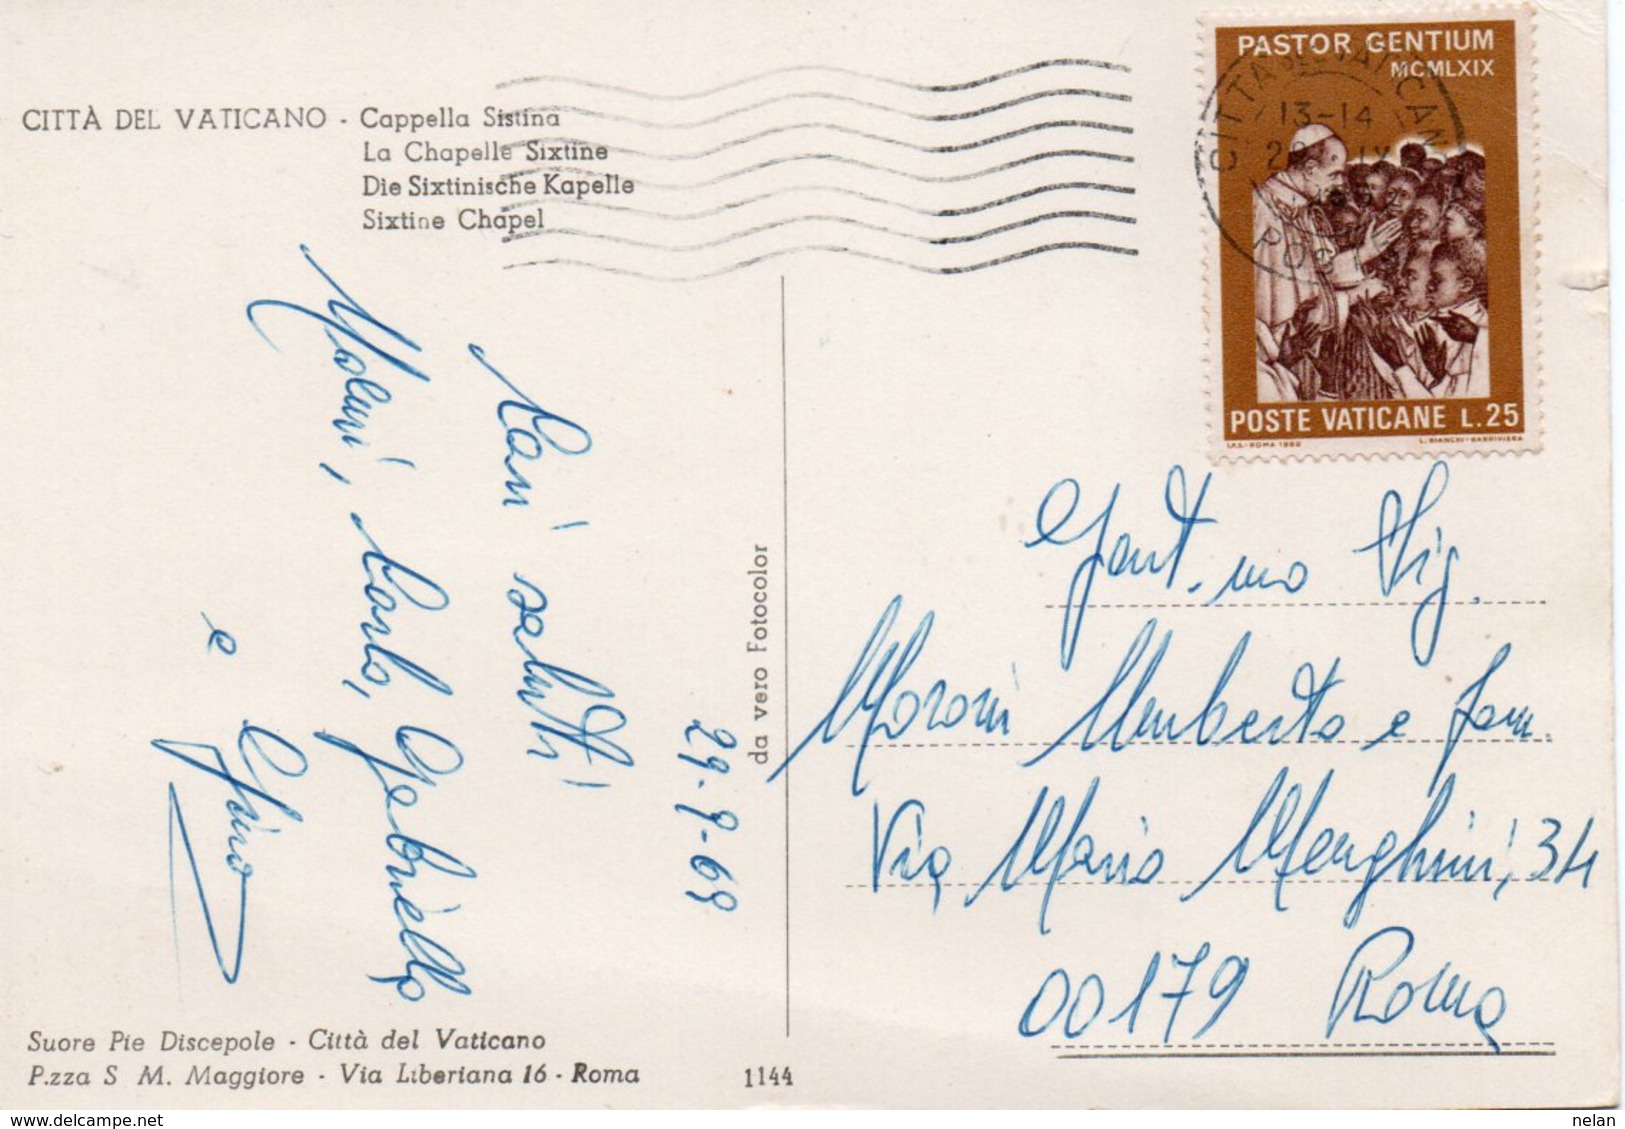 CITTÀ DEL VATICANO - Cappella Sistina
La Chapelle Sixtine
Die Sixtinische Kapelle
Sixtine Chapel
PASTOR GENTIUM
MCMLXIX
CITTA DEL VATICANO
13-14
POSTE VATICANE L.25
I.P.S.-ROMA 1969 L. BIANCHI-BARRIVIERA
29-9-69
Cari saluti
Carlo, Gabriella
e Gino
da vero Fotocolor
Gent.mo Sig.
Moroni Umberto e fam.
Via Mario Menghini, 34
00179 Roma
Suore Pie Discepole - Città del Vaticano
P.zza S M. Maggiore - Via Liberiana 16 - Roma
1144
nelan